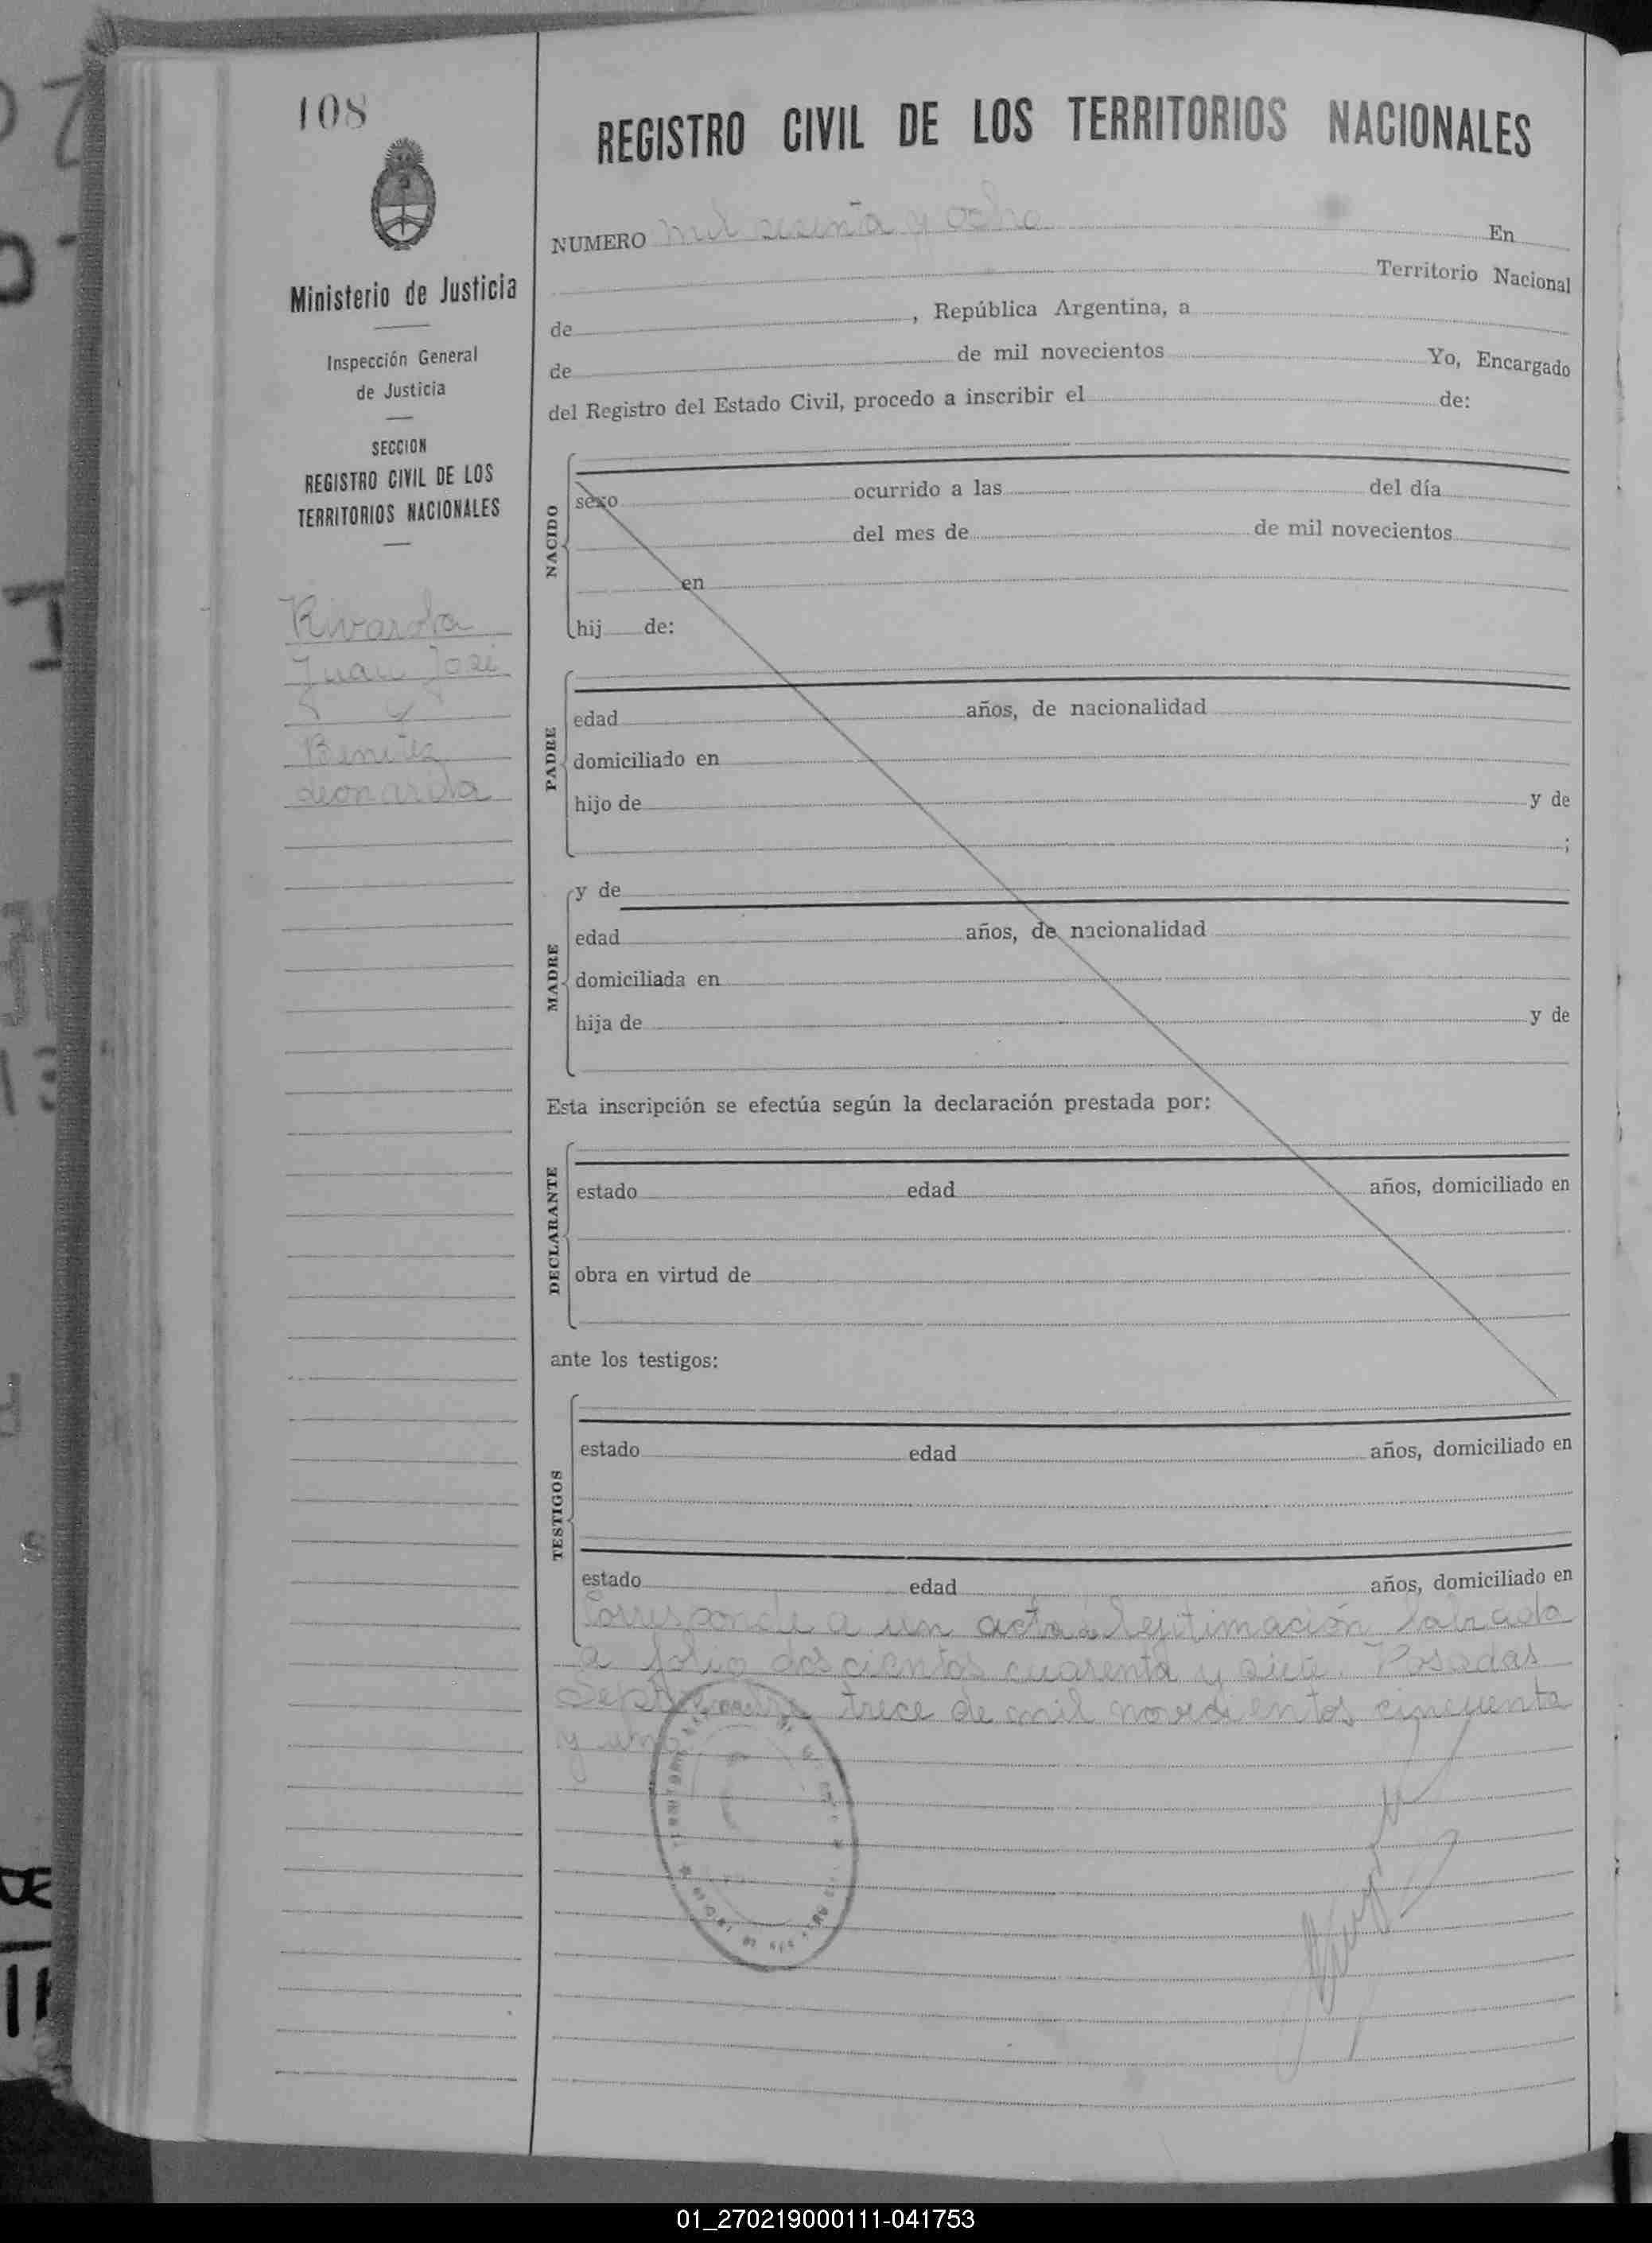 108
Ministerio de Justicia
Inspección General
de Justicia
SECCION
REGISTRO CIVIL DE LOS
TERRITORIOS NACIONALES
Rivarola
Juan José
y
Benitez
Leonarda
REGISTRO CIVIL DE LOS TERRITORIOS NACIONALES
NUMERO mil sesenta y ocho En
Territorio Nacional
de , República Argentina, a
de de mil novecientos Yo, Encargado
del Registro del Estado Civil, procedo a inscribir el de:
NACIDO
sexo ocurrido a las del día
del mes de de mil novecientos
en
hij de:
PADRE
edad años, de nacionalidad
domiciliado en
hijo de y de
;
MADRE
y de
edad años, de nacionalidad
domiciliada en
hija de y de
Esta inscripción se efectúa según la declaración prestada por:
DECLARANTE
estado edad años, domiciliado en
obra en virtud de
ante los testigos:
TESTIGOS
estado edad años, domiciliado en
estado edad años, domiciliado en
Corresponde a un acta de legitimación labrada
a folio doscientos cuarenta y siete. Posadas
Septiembre trece de mil novecientos cincuenta
y uno
01_270219000111-041753